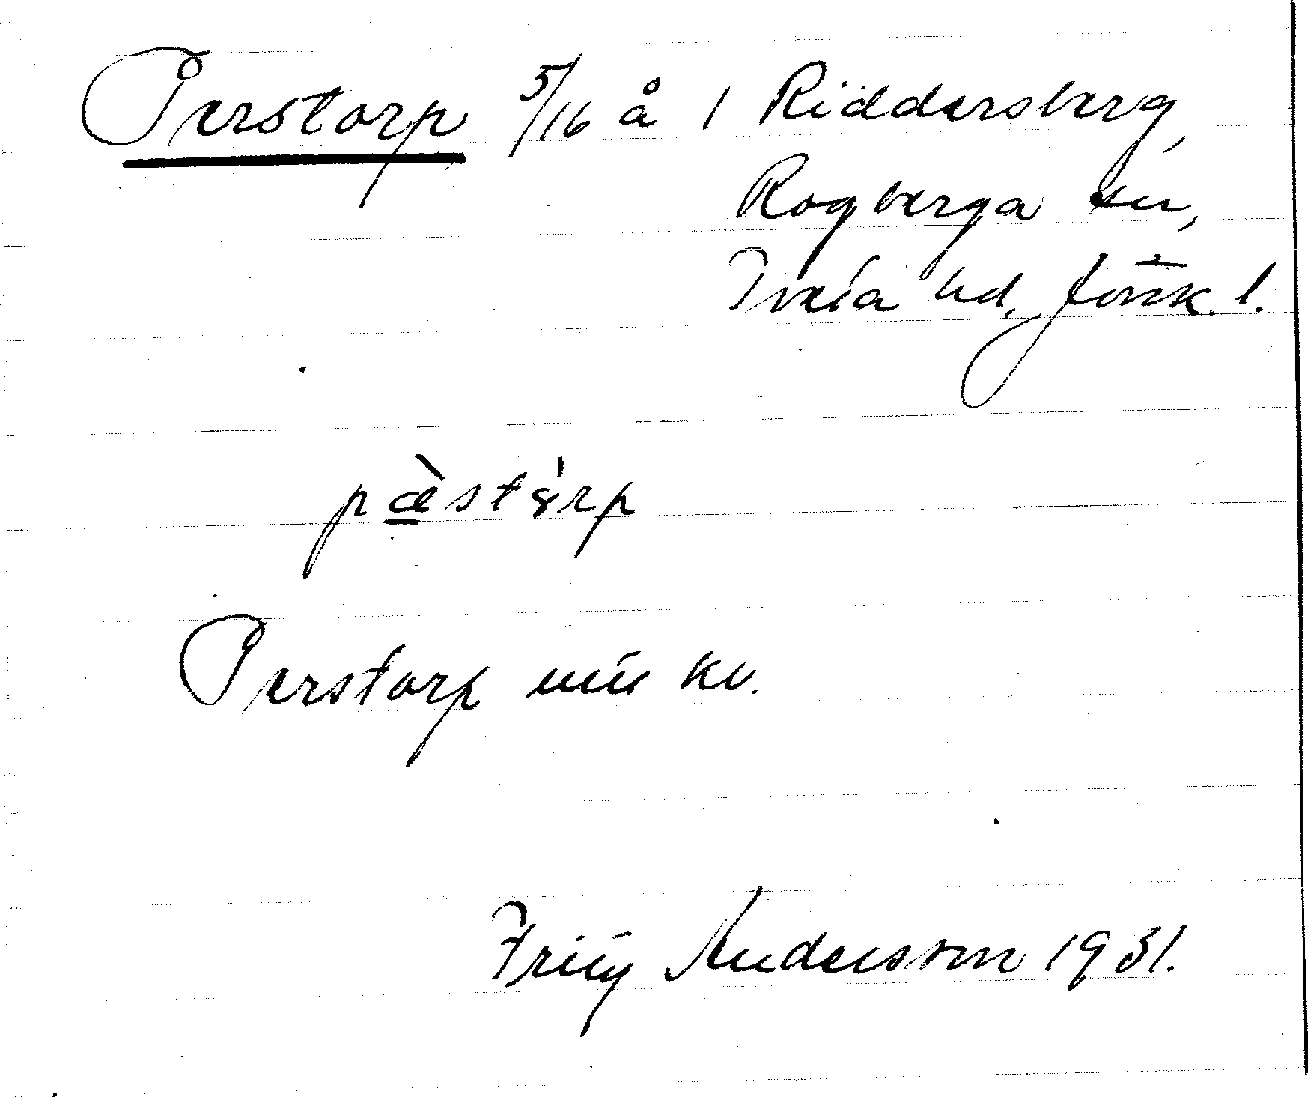 Perstorp 5/16 å 1 Riddersberg,
Rogberga sn,
Tveta hd, Jönk. l.
pæ̀stərp
Perstorp min kv.
Andersson 1931.